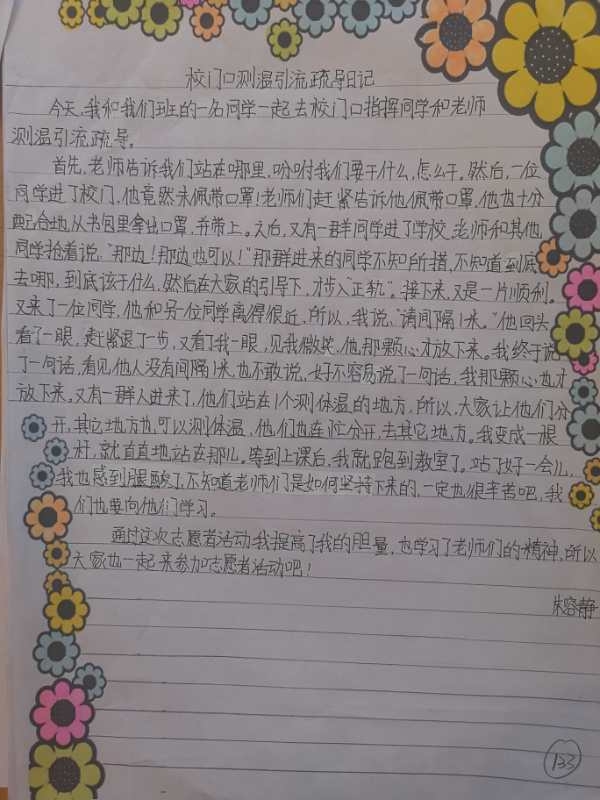 校门口测温引流疏导日记
今天,我和我们班的一名同学一起去校门口指挥同学和老师
测温引流疏导。
首先,老师告诉我们站在哪里,吩咐我们要干什么,怎么干。然后,一位
同学进了校门,他竟然未佩带口罩!老师们赶紧告诉他佩带口罩,他也十分
配合地从书包里拿出口罩,并带上。之后,又有一群同学进了学校,老师和其他
同学抢着说:“那边!那边也可以!”那群进来的同学不知所措,不知道到底
去哪,到底该干什么,然后在大家的引导下,才“步入正轨”。接下来,又是一片顺利。
又来了一位同学,他和另一位同学离得很近,所以,我说:“请间隔1米。”他回头
看了一眼,赶紧退了一步,又看了我一眼,见我微笑,他那颗心才放下来。我终于说
了一句话,看见他人没有间隔1米,也不敢说,好不容易说了一句话,我那颗心也才
放下来。又有一群人进来了,他们站在1个测体温的地方,所以,大家让他们分
开,其它地方也可以测体温,他们也连忙分开,去其它地方。我变成一根
杆,就直直地站在那儿。等到上课后,我就跑到教室了,站了好一会儿,
我也感到腿酸了,不知道老师们是如何坚持下来的,一定也很辛苦吧,我
们也要向他们学习。
通过这次志愿者活动,我提高了我的胆量,也学习了老师们的精神,所以
大家也一起来参加志愿者活动吧!
朱容静
133